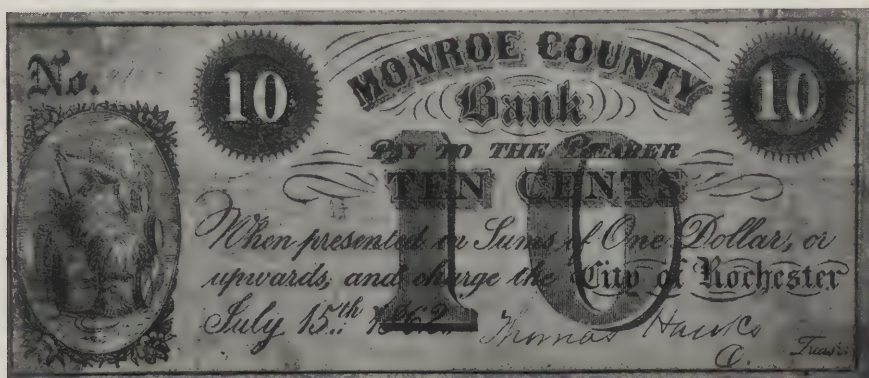 No.
10
MONROE COUNTY
10
Bank
PAY TO THE BEARER
TEN CENTS
10
When presented in Sums of One Dollar, or
upwards, and charge the City of Rochester
July 15th 1862.
Thomas Hawks
C. Treasr.